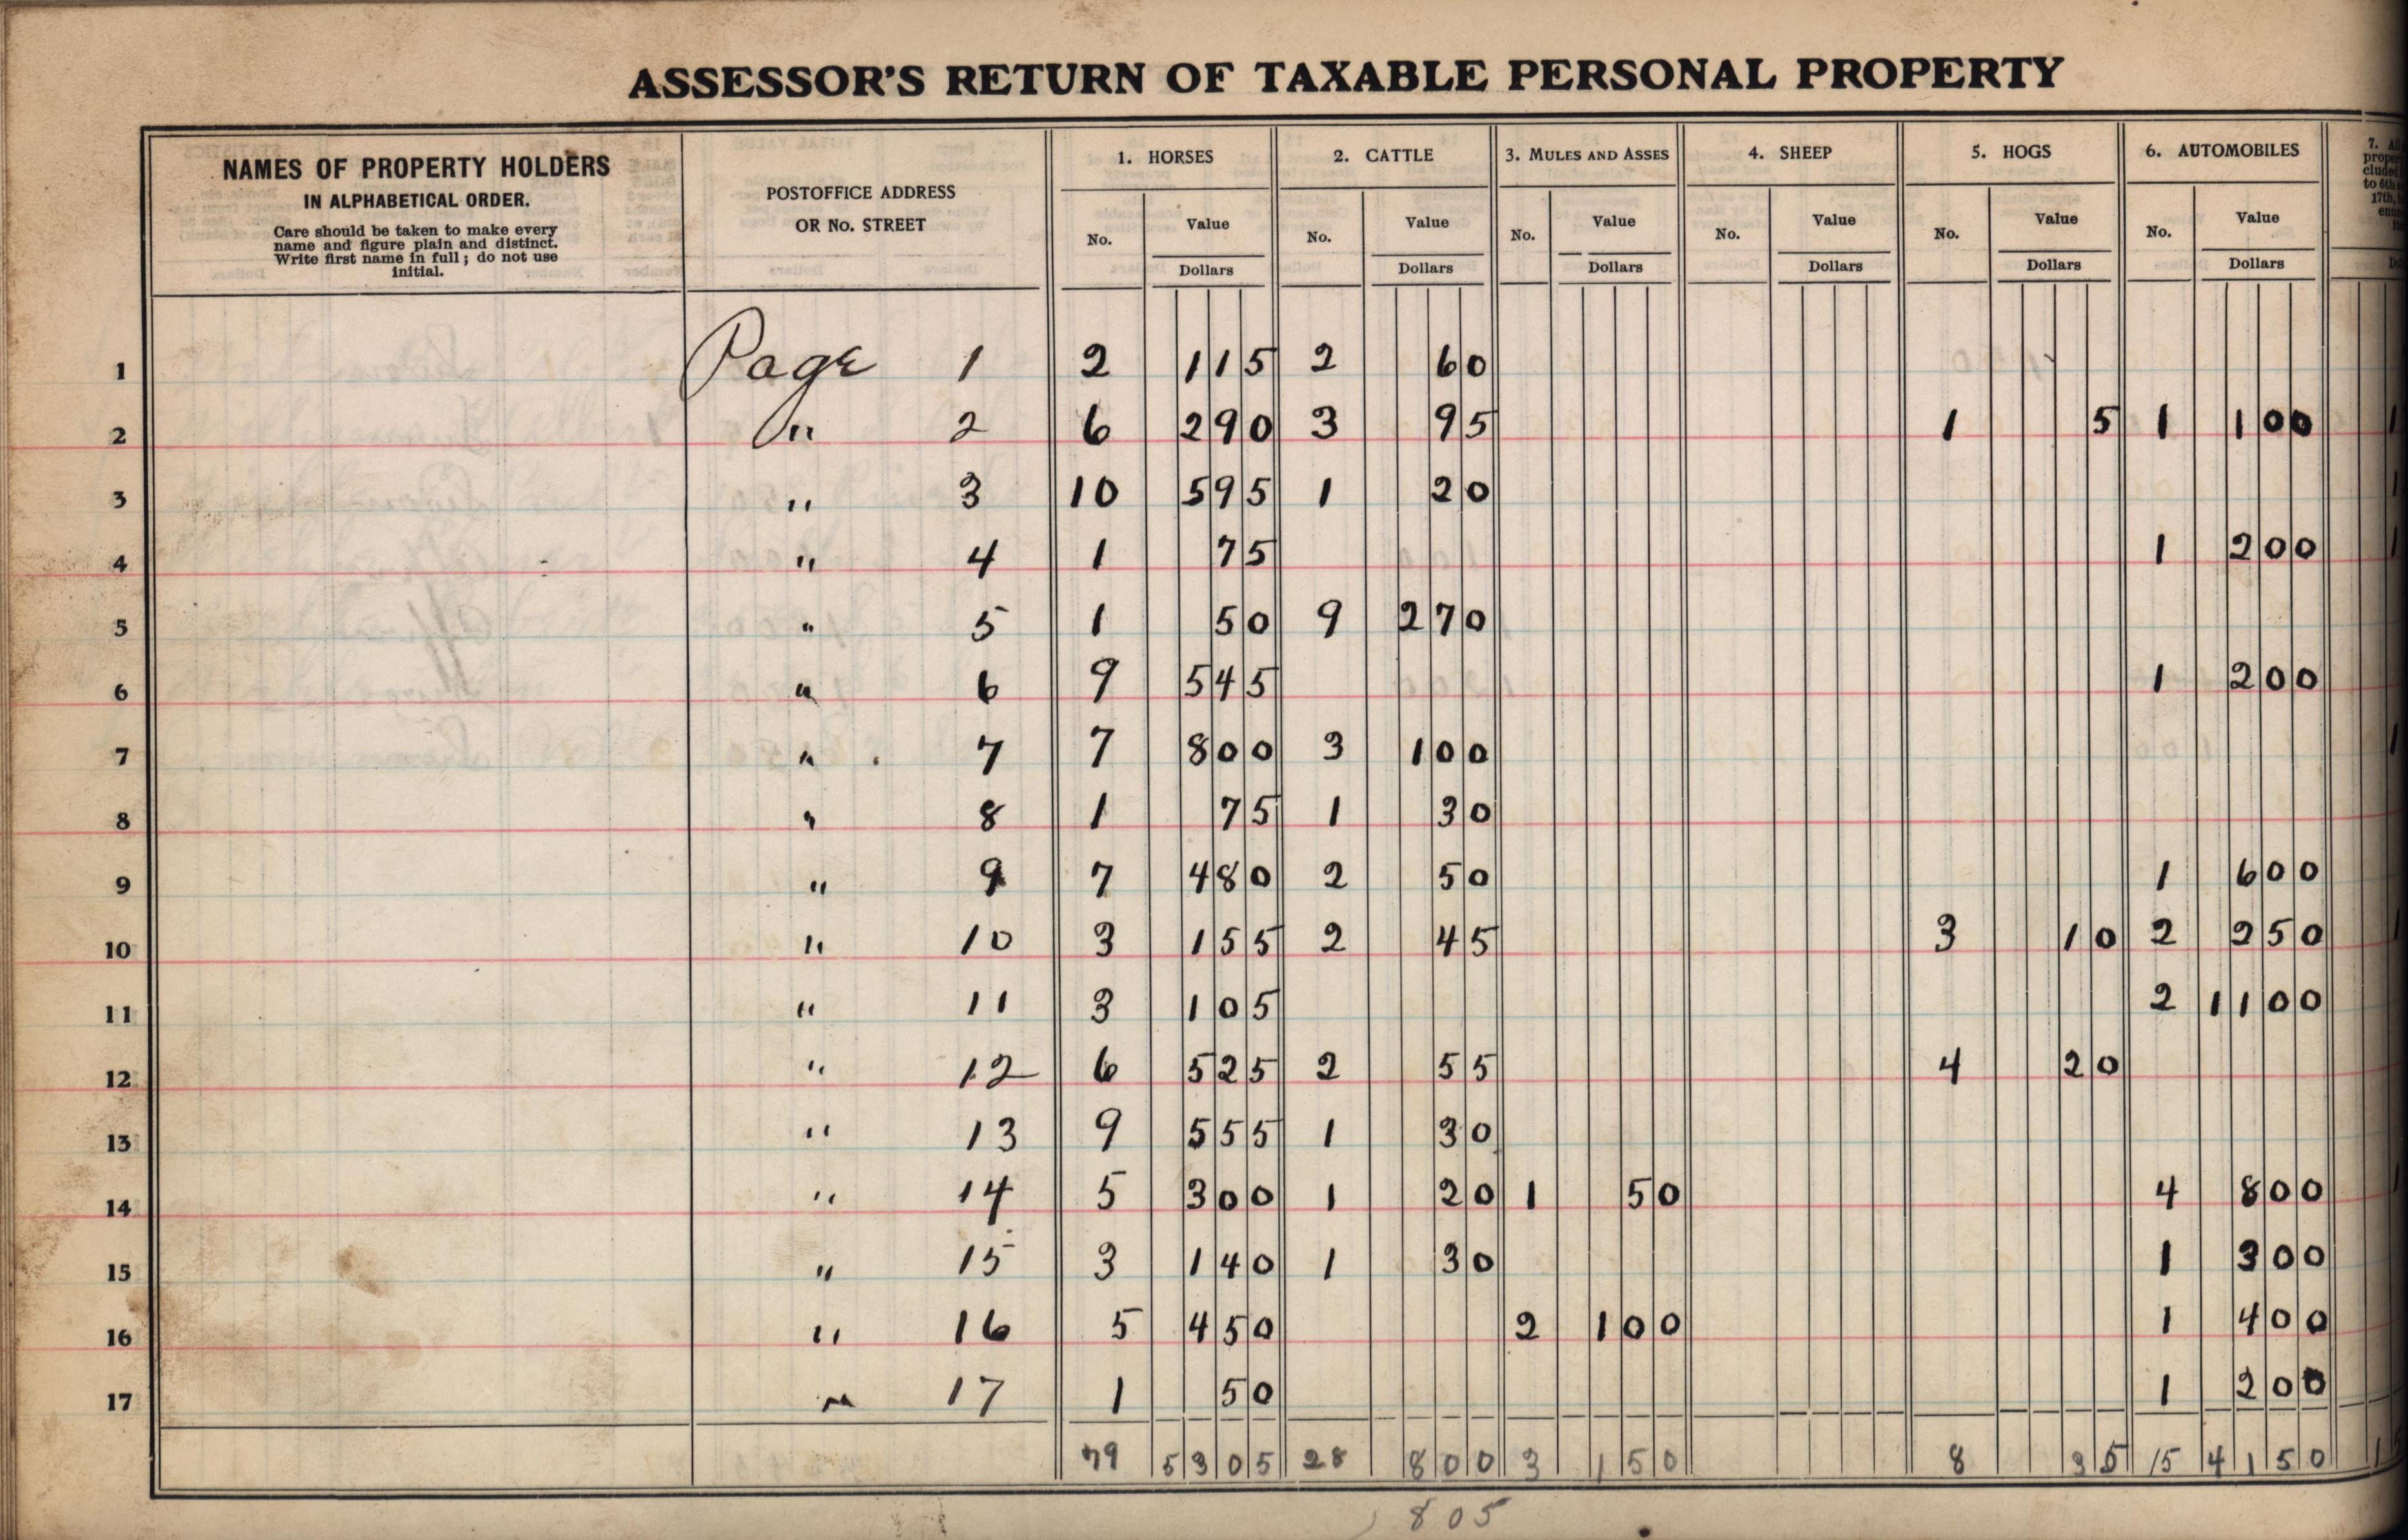 ASSESSOR'S RETURN OF TAXABLE PERSONAL PROPERTY
NAMES OF PROPERTY HOLDERS
IN ALPHABETICAL ORDER.
Care should be taken to make every
name and figure plain and distinct.
Write first name in full; do not use
initial.
POSTOFFICE ADDRESS
OR No. STREET
1. HORSES 2. CATTLE 3. MULES AND ASSES 4. SHEEP 5. HOGS 6. AUTOMOBILES
No. Value No. Value No. Value No. Value No. Value No. Value
Dollars Dollars Dollars Dollars Dollars Dollars
1 Page 1 2 115 2 60
2 " 2 6 290 3 95 1 5 1 100
3 " 3 10 595 1 20
4 " 4 1 75 1 200
5 " 5 1 50 9 270
6 " 6 9 545 1 200
7 " 7 7 800 3 100
8 " 8 1 75 1 30
9 " 9 7 480 2 50 1 600
10 " 10 3 155 2 45 3 10 2 250
11 " 11 3 105 2 1100
12 " 12 6 525 2 55 4 20
13 " 13 9 555 1 30
14 " 14 5 300 1 20 1 50 4 800
15 " 15 3 140 1 30 1 300
16 " 16 5 450 2 100 1 400
17 " 17 1 50 1 200
79 5305 28 800 3 150 8 35 15 4150
805